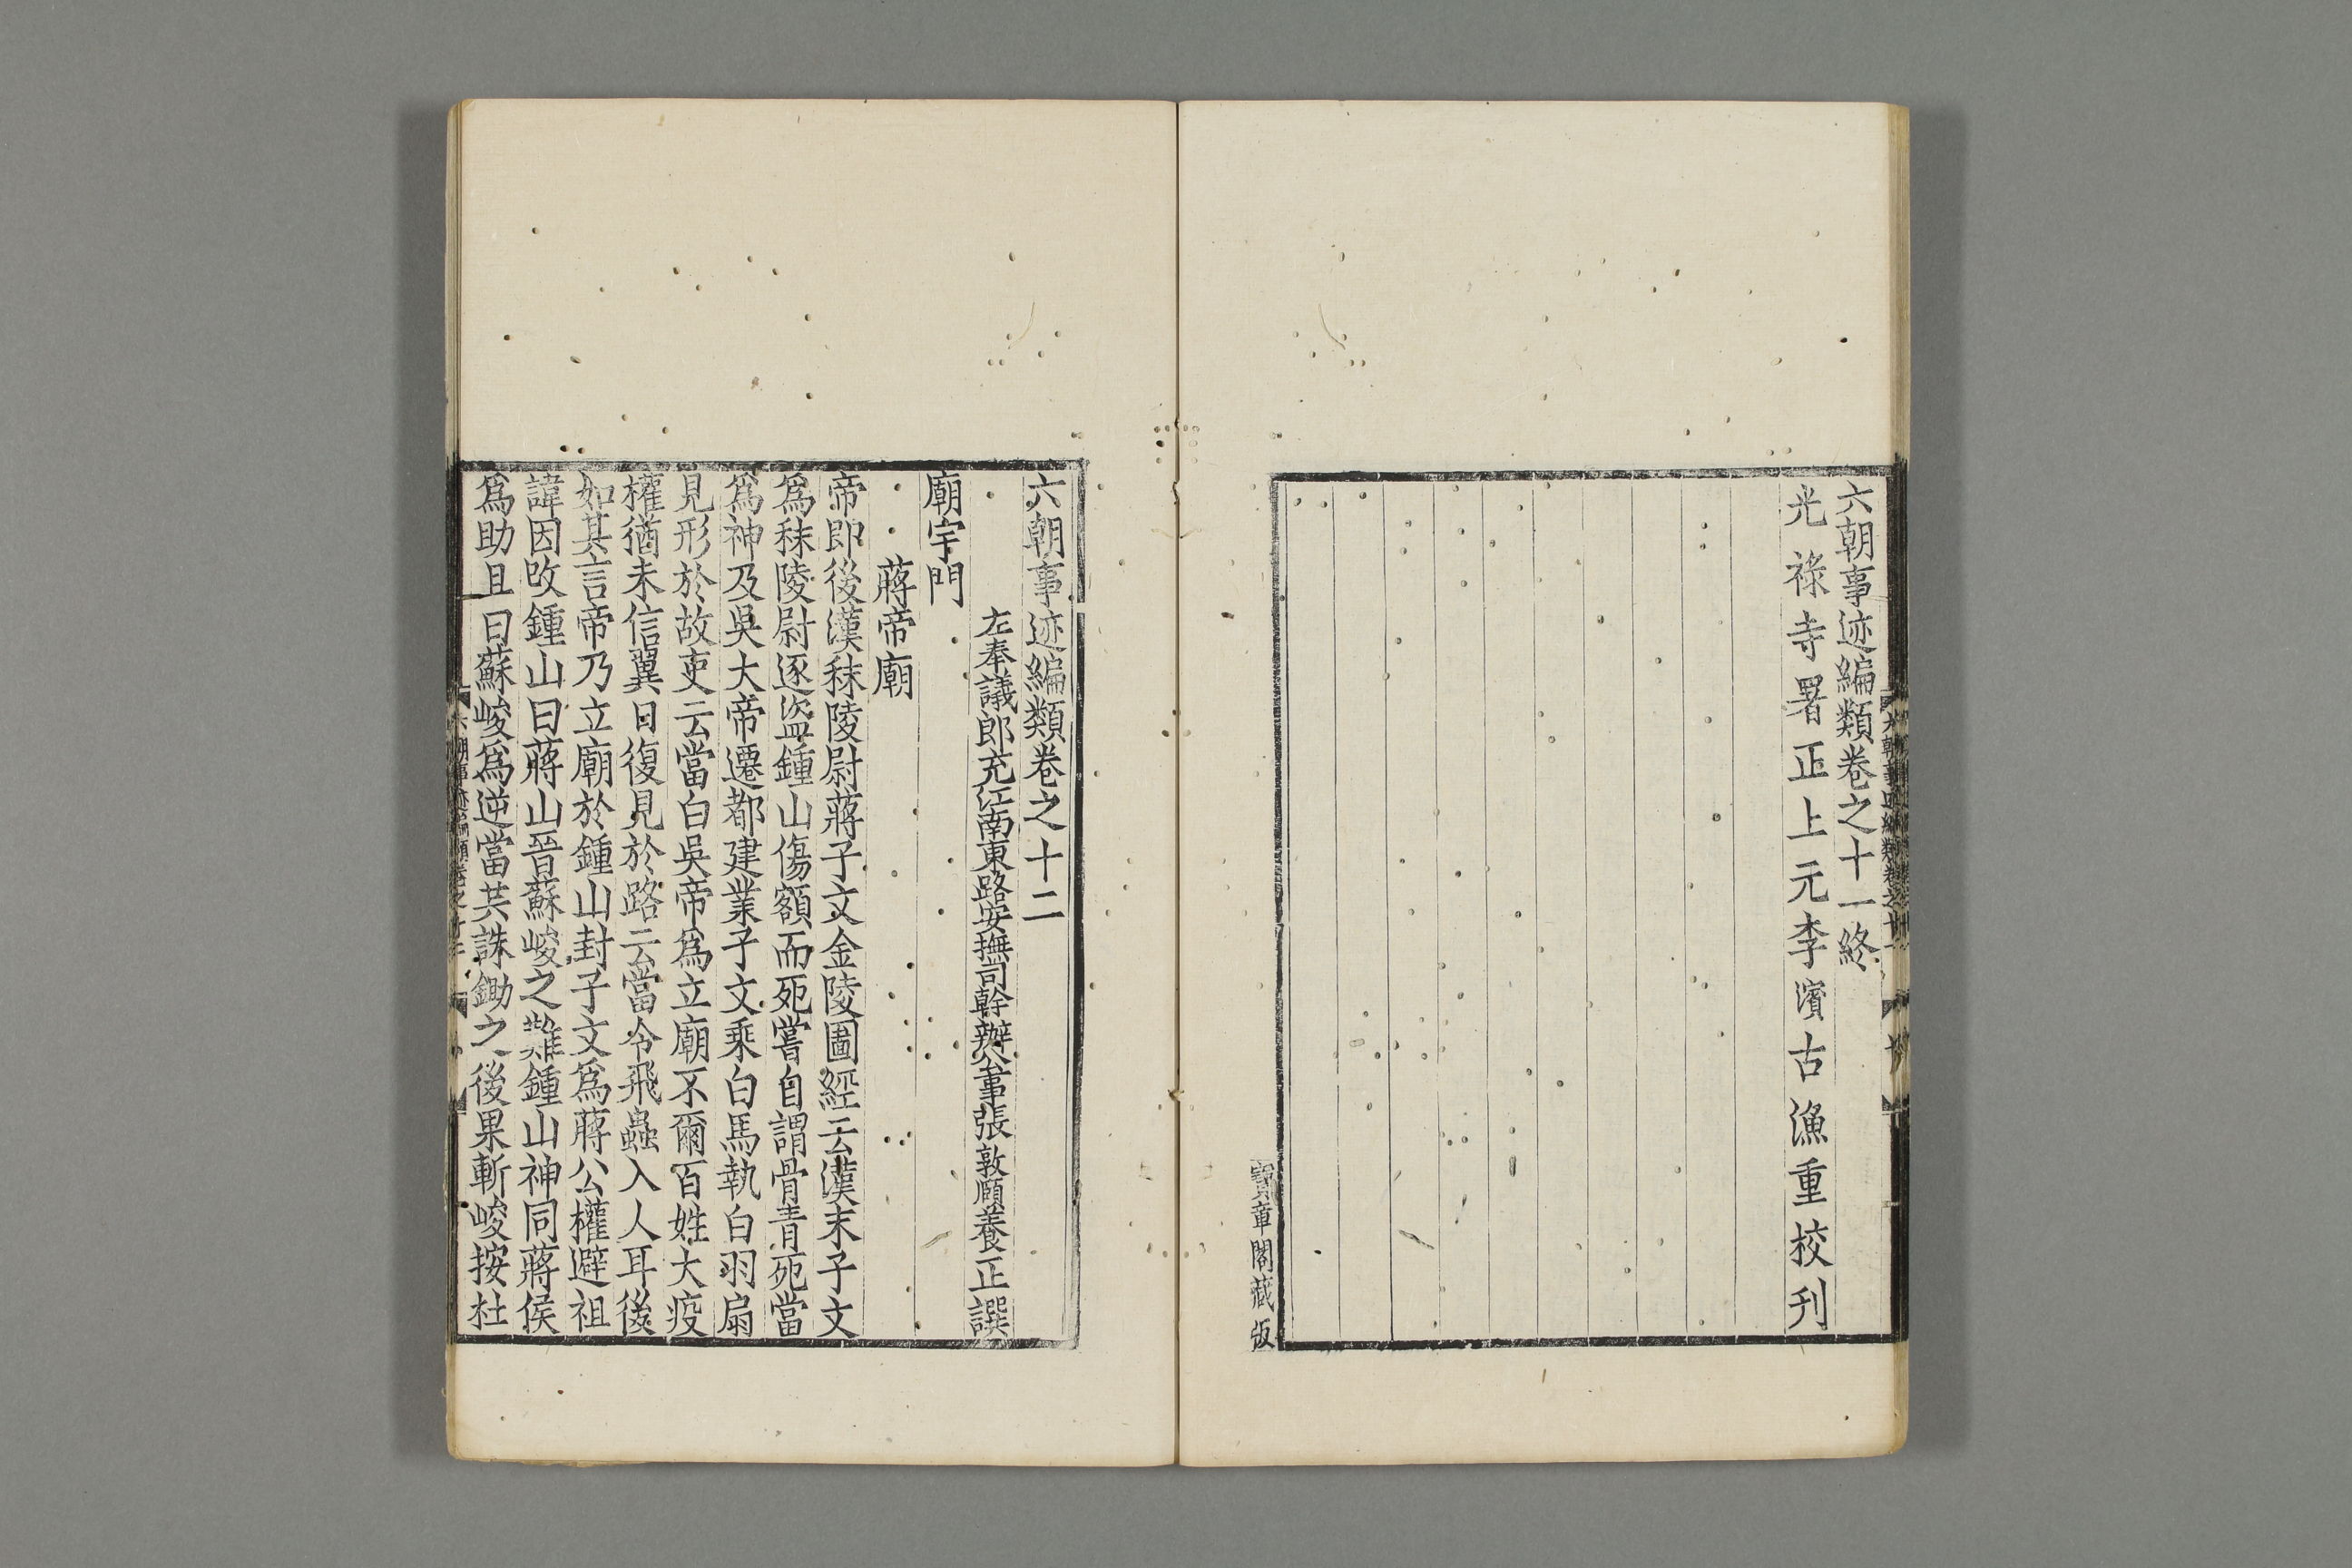 六朝事迹編類卷之十一終
光祿寺署正上元李濱古漁重校刋
寶章閣藏版
六朝事迹編類卷之十二
左奉議郎充江南東路安撫司幹辦公事張敦頤養正譔
廟宇門
蔣帝廟
帝即後漢秣陵尉蔣子文金陵圖經云漢末子文
爲秣陵尉逐盜鍾山傷額而死嘗自謂骨青死當
爲神及吳大帝遷都建業子文乘白馬執白羽扇
見形於故吏云當白吳帝爲立廟不爾百姓大疫
權猶未信翼日復見於路云當令飛蟲入人耳後
如其言帝乃立廟於鍾山封子文爲蔣公權避祖
諱因改鍾山曰蔣山晉蘇峻之難鍾山神同蔣侯
爲助且曰蘇峻爲逆當共誅鋤之後果斬峻按杜